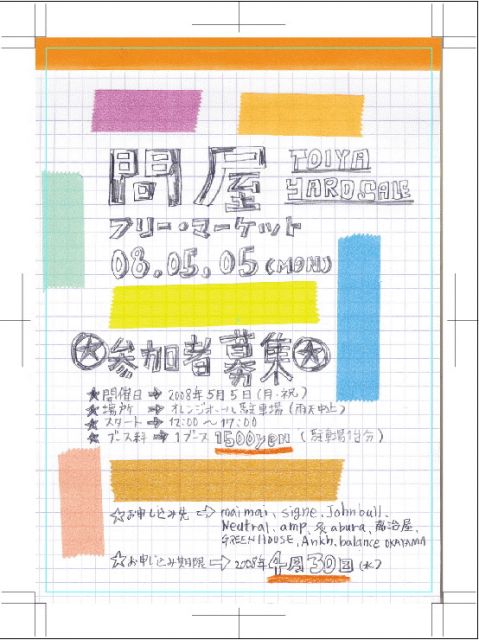 問屋
TOIYA
YARD SALE
フリー・マーケット
08.05.05 (MON)
★参加者募集★
★開催日 ➡ 2008年5月5日(月・祝)
★場所 ➡ オレンジホール駐車場(雨天中止)
★スタート ➡ 12:00〜17:00
★ブース料 ➡ 1ブース 1500yen (駐車場1台分)
☆お申し込み先 ⇨ maimai、signe、Johnbull、
Neutral、amp、炙abura、鍛冶屋、
GREEN HOUSE、Ankh、balance OKAYAMA
☆お申し込み期限 ⇨ 2008年4月30日(水)